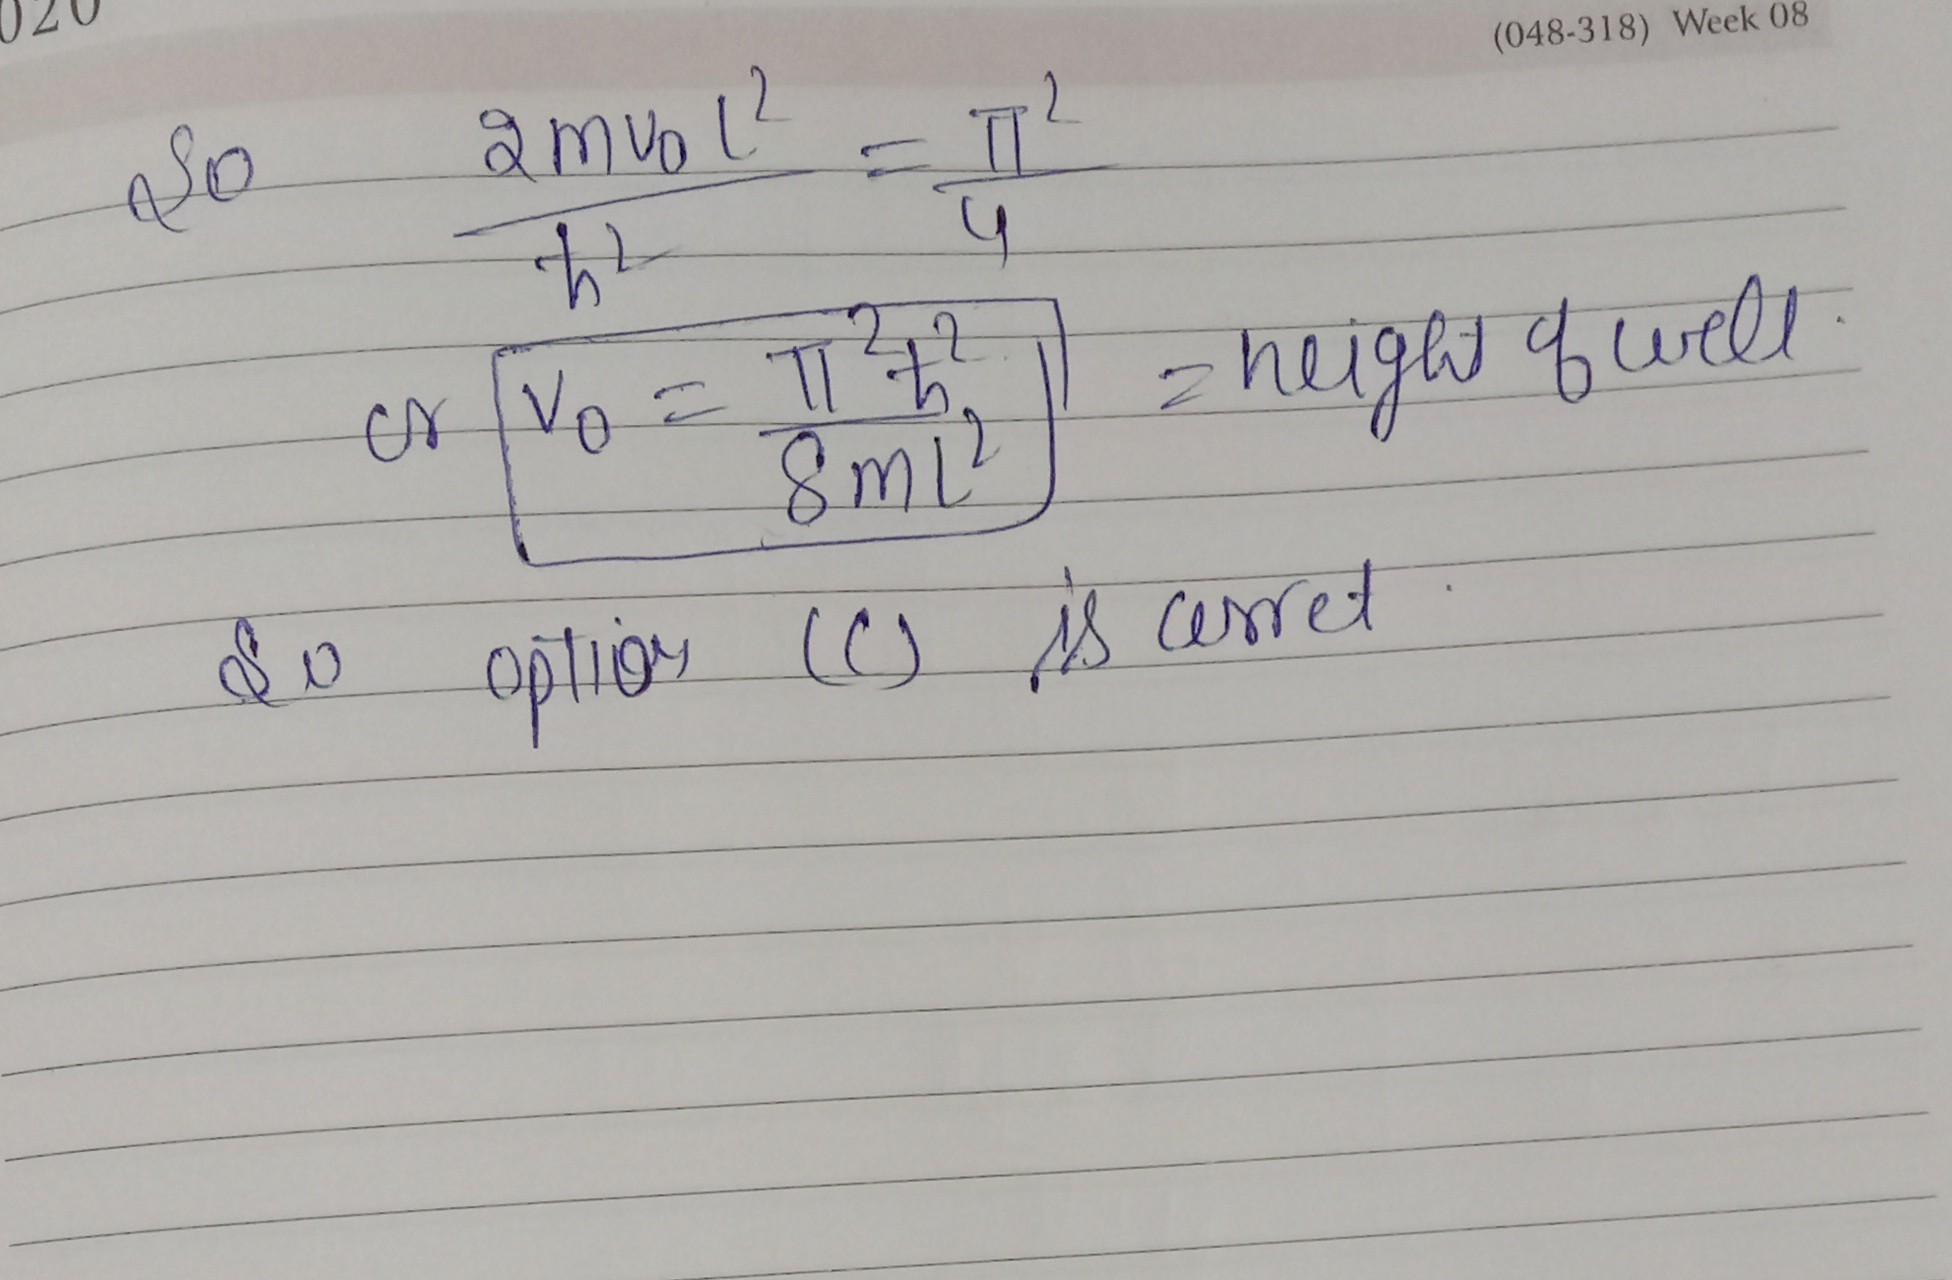 020
(048-318) Week 08
So 2mv₀l²/ħ² = π²/4
or V₀ = π²ħ²/8ml² = height of well.
So option (C) is corret.